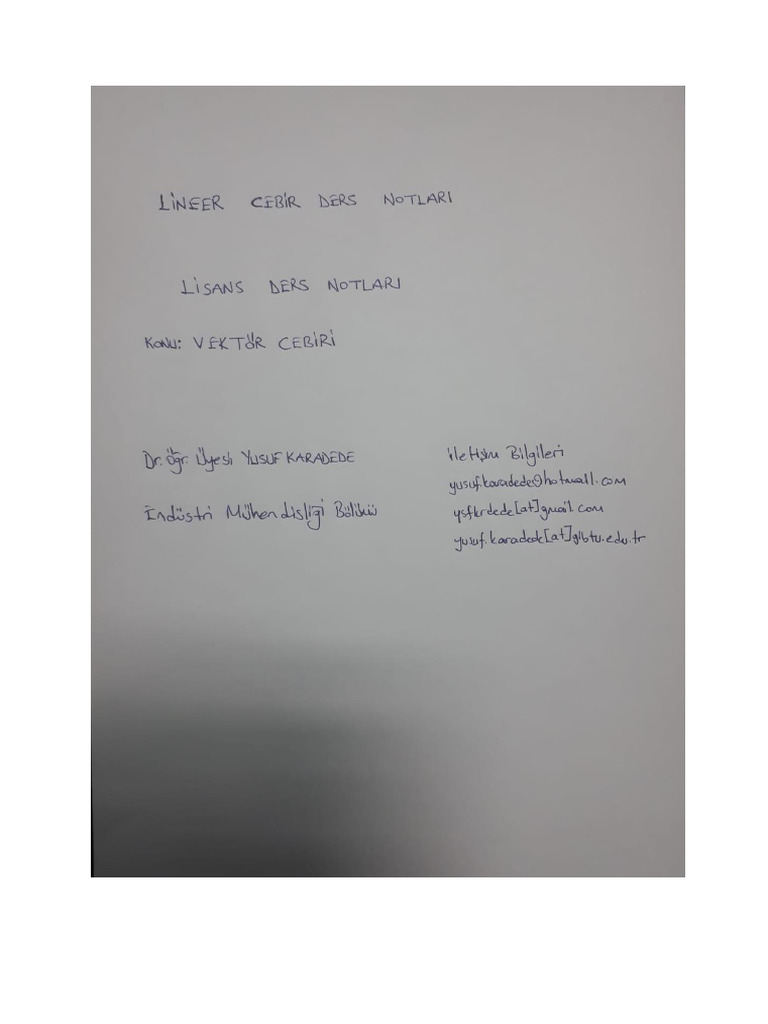 LİNEER CEBİR DERS NOTLARI
LİSANS DERS NOTLARI
KONU: VEKTÖR CEBİRİ
Dr. Öğr. Üyesi YUSUF KARADEDE
Endüstri Mühendisliği Bölümü
İletişim Bilgileri
yusuf.karadede@hotmail.com
ysfkrdede[at]gmail.com
yusuf.karadede[at]gibtu.edu.tr